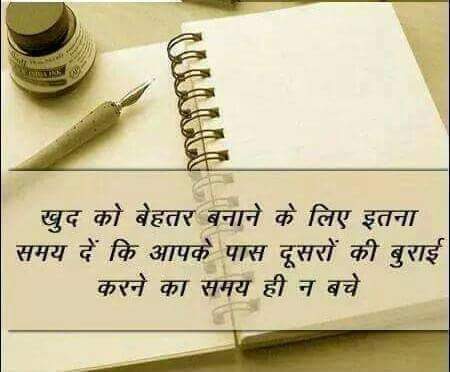 INDIA INK
खुद को बेहतर बनाने के लिए इतना
समय दें कि आपके पास दूसरों की बुराई
करने का समय ही न बचे